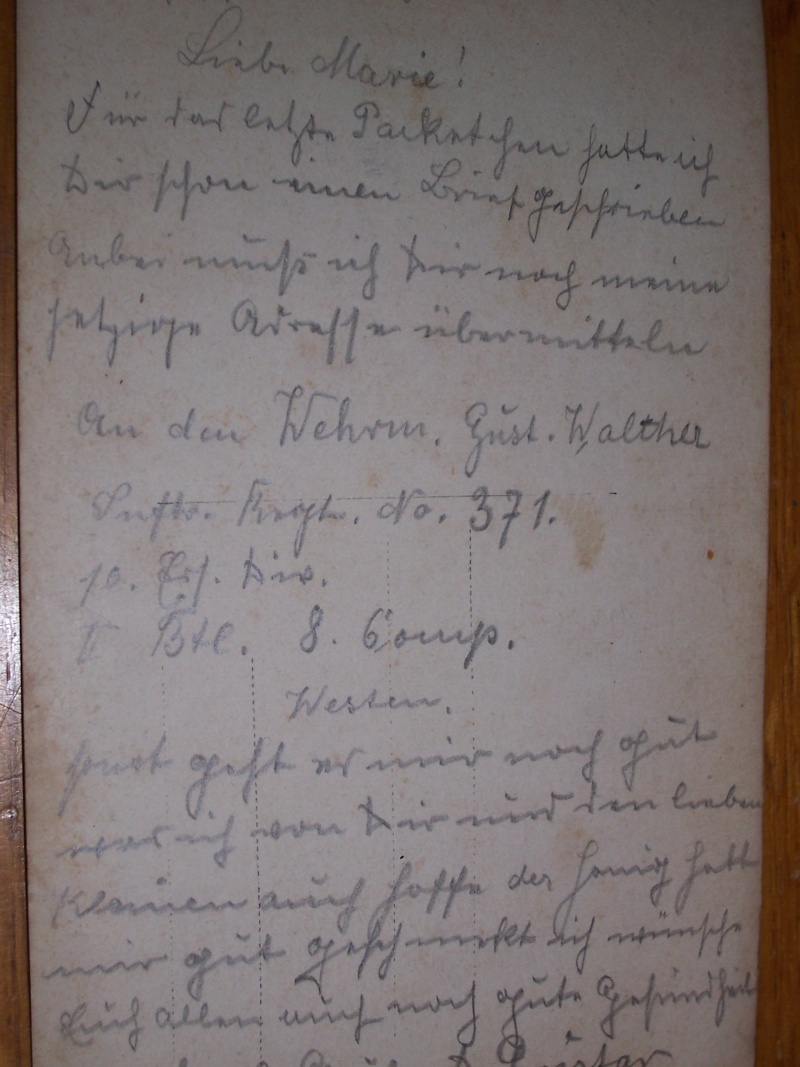 Liebe Marie!
Für das letzte Packetchen hatte ich
Dir schon einen Brief geschrieben
Anbei muß ich Dir noch meine
jetzige Adresse übermitteln
An den Wehrm. Gust. Walther
Inftr. Regt. No. 371.
10. Ers. Div.
II Btl. 8. Comp.
Westen.
sonst geht es mir noch gut
was ich von Dir und den lieben
kleinen auch hoffe der Honig hatt
mir gut geschmekt ich wünsche
Euch allen auch noch gute Gesundheit